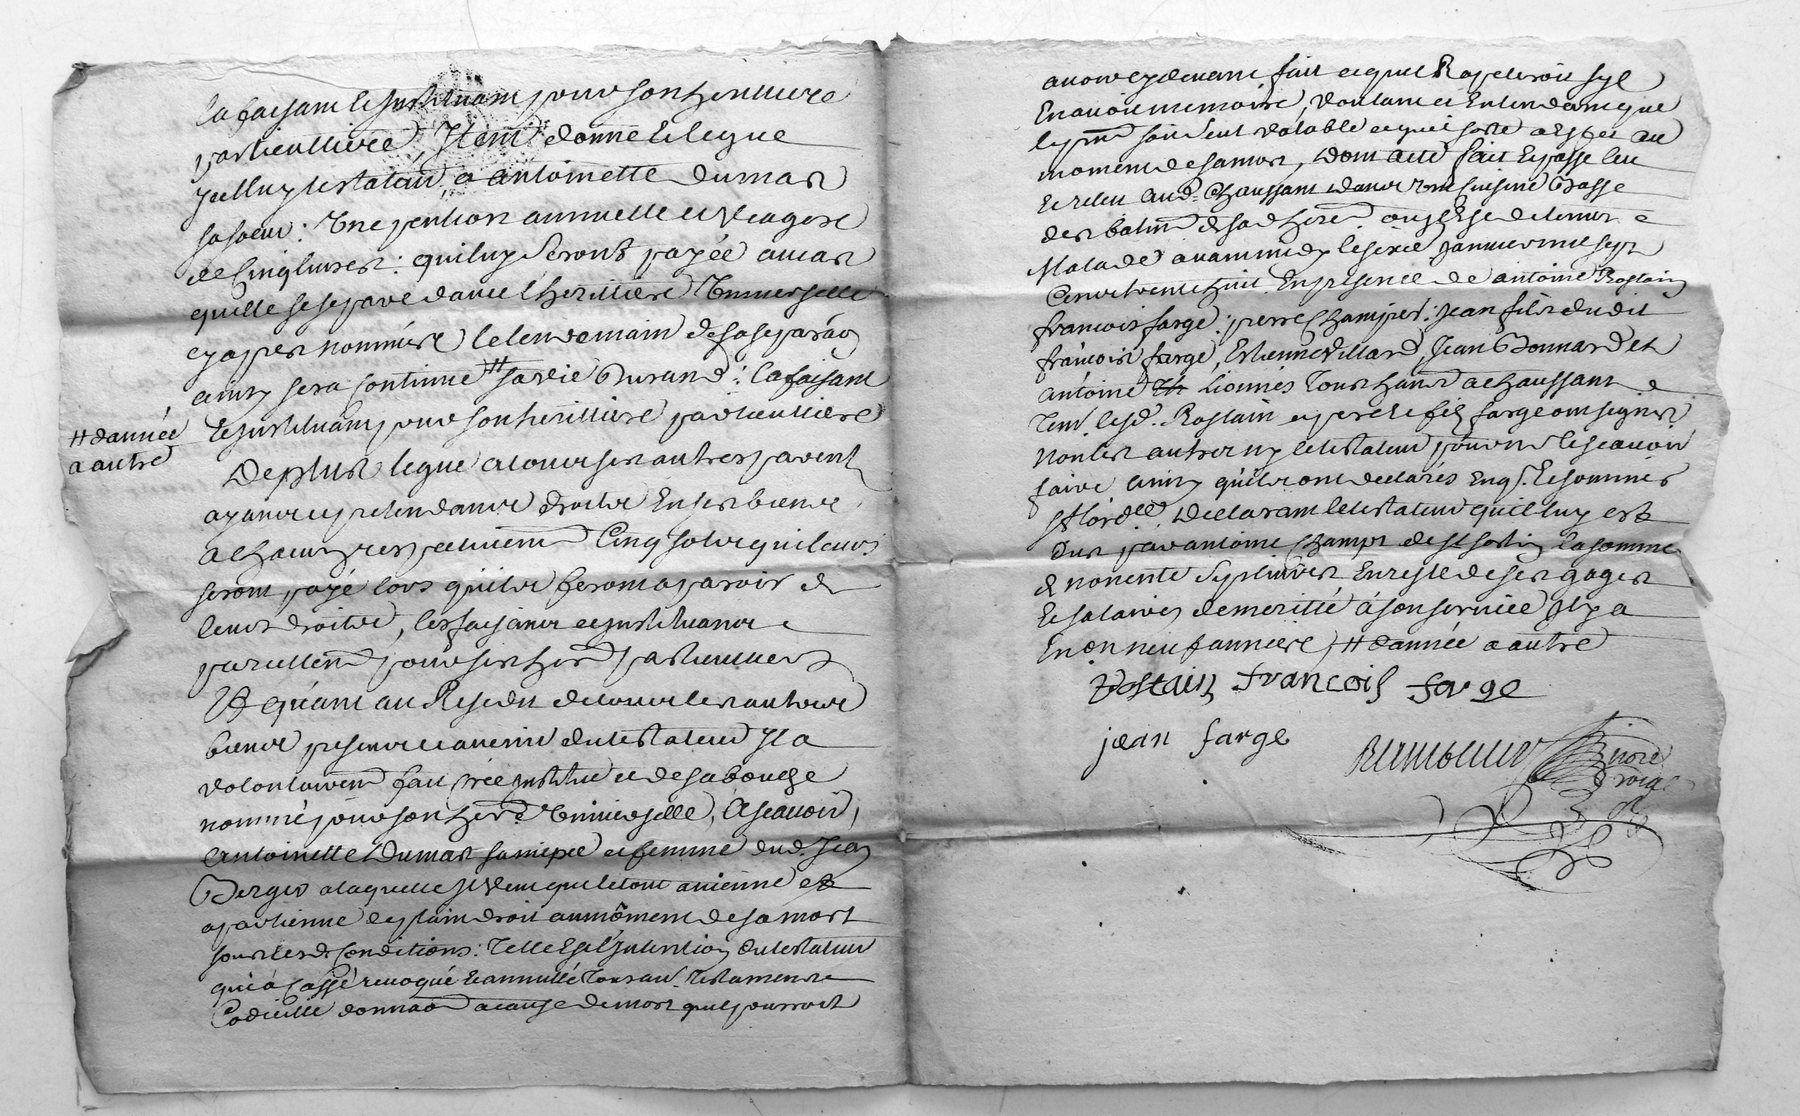 la faisant & instituant pour son heritiere
particulliere, Item donne & legue
yceluy testateur, a antoinette dumas
sa soeur: une pention annuelle et viagere
de cinq livres: qui luy seront payée au cas
quelle se separe davec l'herittiere universelle
cy apres nommée le lendemain de sa separãon
ainsy sera continué # sa vie durand: la faisant
& instituant pour son herittiere particulliere
# d'année
a autre
De plus legue a tous ses autres parents
ayants et pretendants droits en ses biens
a chacun respectivem̃t cinq sols qui leurs
seront payé lors qu'ils feront aparoir de
leurs droits, les faisants et instituants
pareillem̃t pour ses her̃s particulliers
Et quant au Residu de tous les autres
biens presents et avenir du testateur Il a
volontairem̃t fait créé institué et de sa bouche
nommé pour son her̃e universelle, Ascavoir,
Antoinette Dumas sa niepce et femme dud. Jean
Berger a laquelle Il veut que le tout avienne et
apartienne de plain droit au môment de sa mort
sous lesd. conditions: Telle est l'intention du testateur
qui à cassé revoqué & annullé tous aut. testaments
Codicille donnaõn a cause de mort quil pourroit
avoir cy devant fait et quel Rapeleroit syl
En avoit memoire, voulant et Entendant que
le pr̃nt soit seul valable et quil sorte a Effet au
moment de sa mort, dont acte fait & passé leu
& releu aud. Chaussant dans une cuisine basse
des batim̃ts de sad. here. ou gist led. testateur
Malade avant midy le six janvier mil sept
Cent trente huit En presence de antoine Rostain
francois farge: pierre champs: jean fils dudit
francois farge, Estienne villard, Jean Bonnard et
antoine Lionnes tous hants a chaussant
Tem. lesd. Rostain et pere & fils farge ont signés
non les autres ny le testateur pour ne le scavoir
faire ainsy qu'ils ont declarés Enq. & sommés
s.t l'ordce. declarant le testateur qu'il luy est
dus par antoine champs de st sorlin la somme
de nonente sept livres En reste de ses gages
& salaires de merité à son service Il y a
Environ neuf années # d'année a autre
Rostain francois farge
jean farge